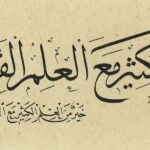 كثير مع العلم الق
خير من العلم الكثير مع ال